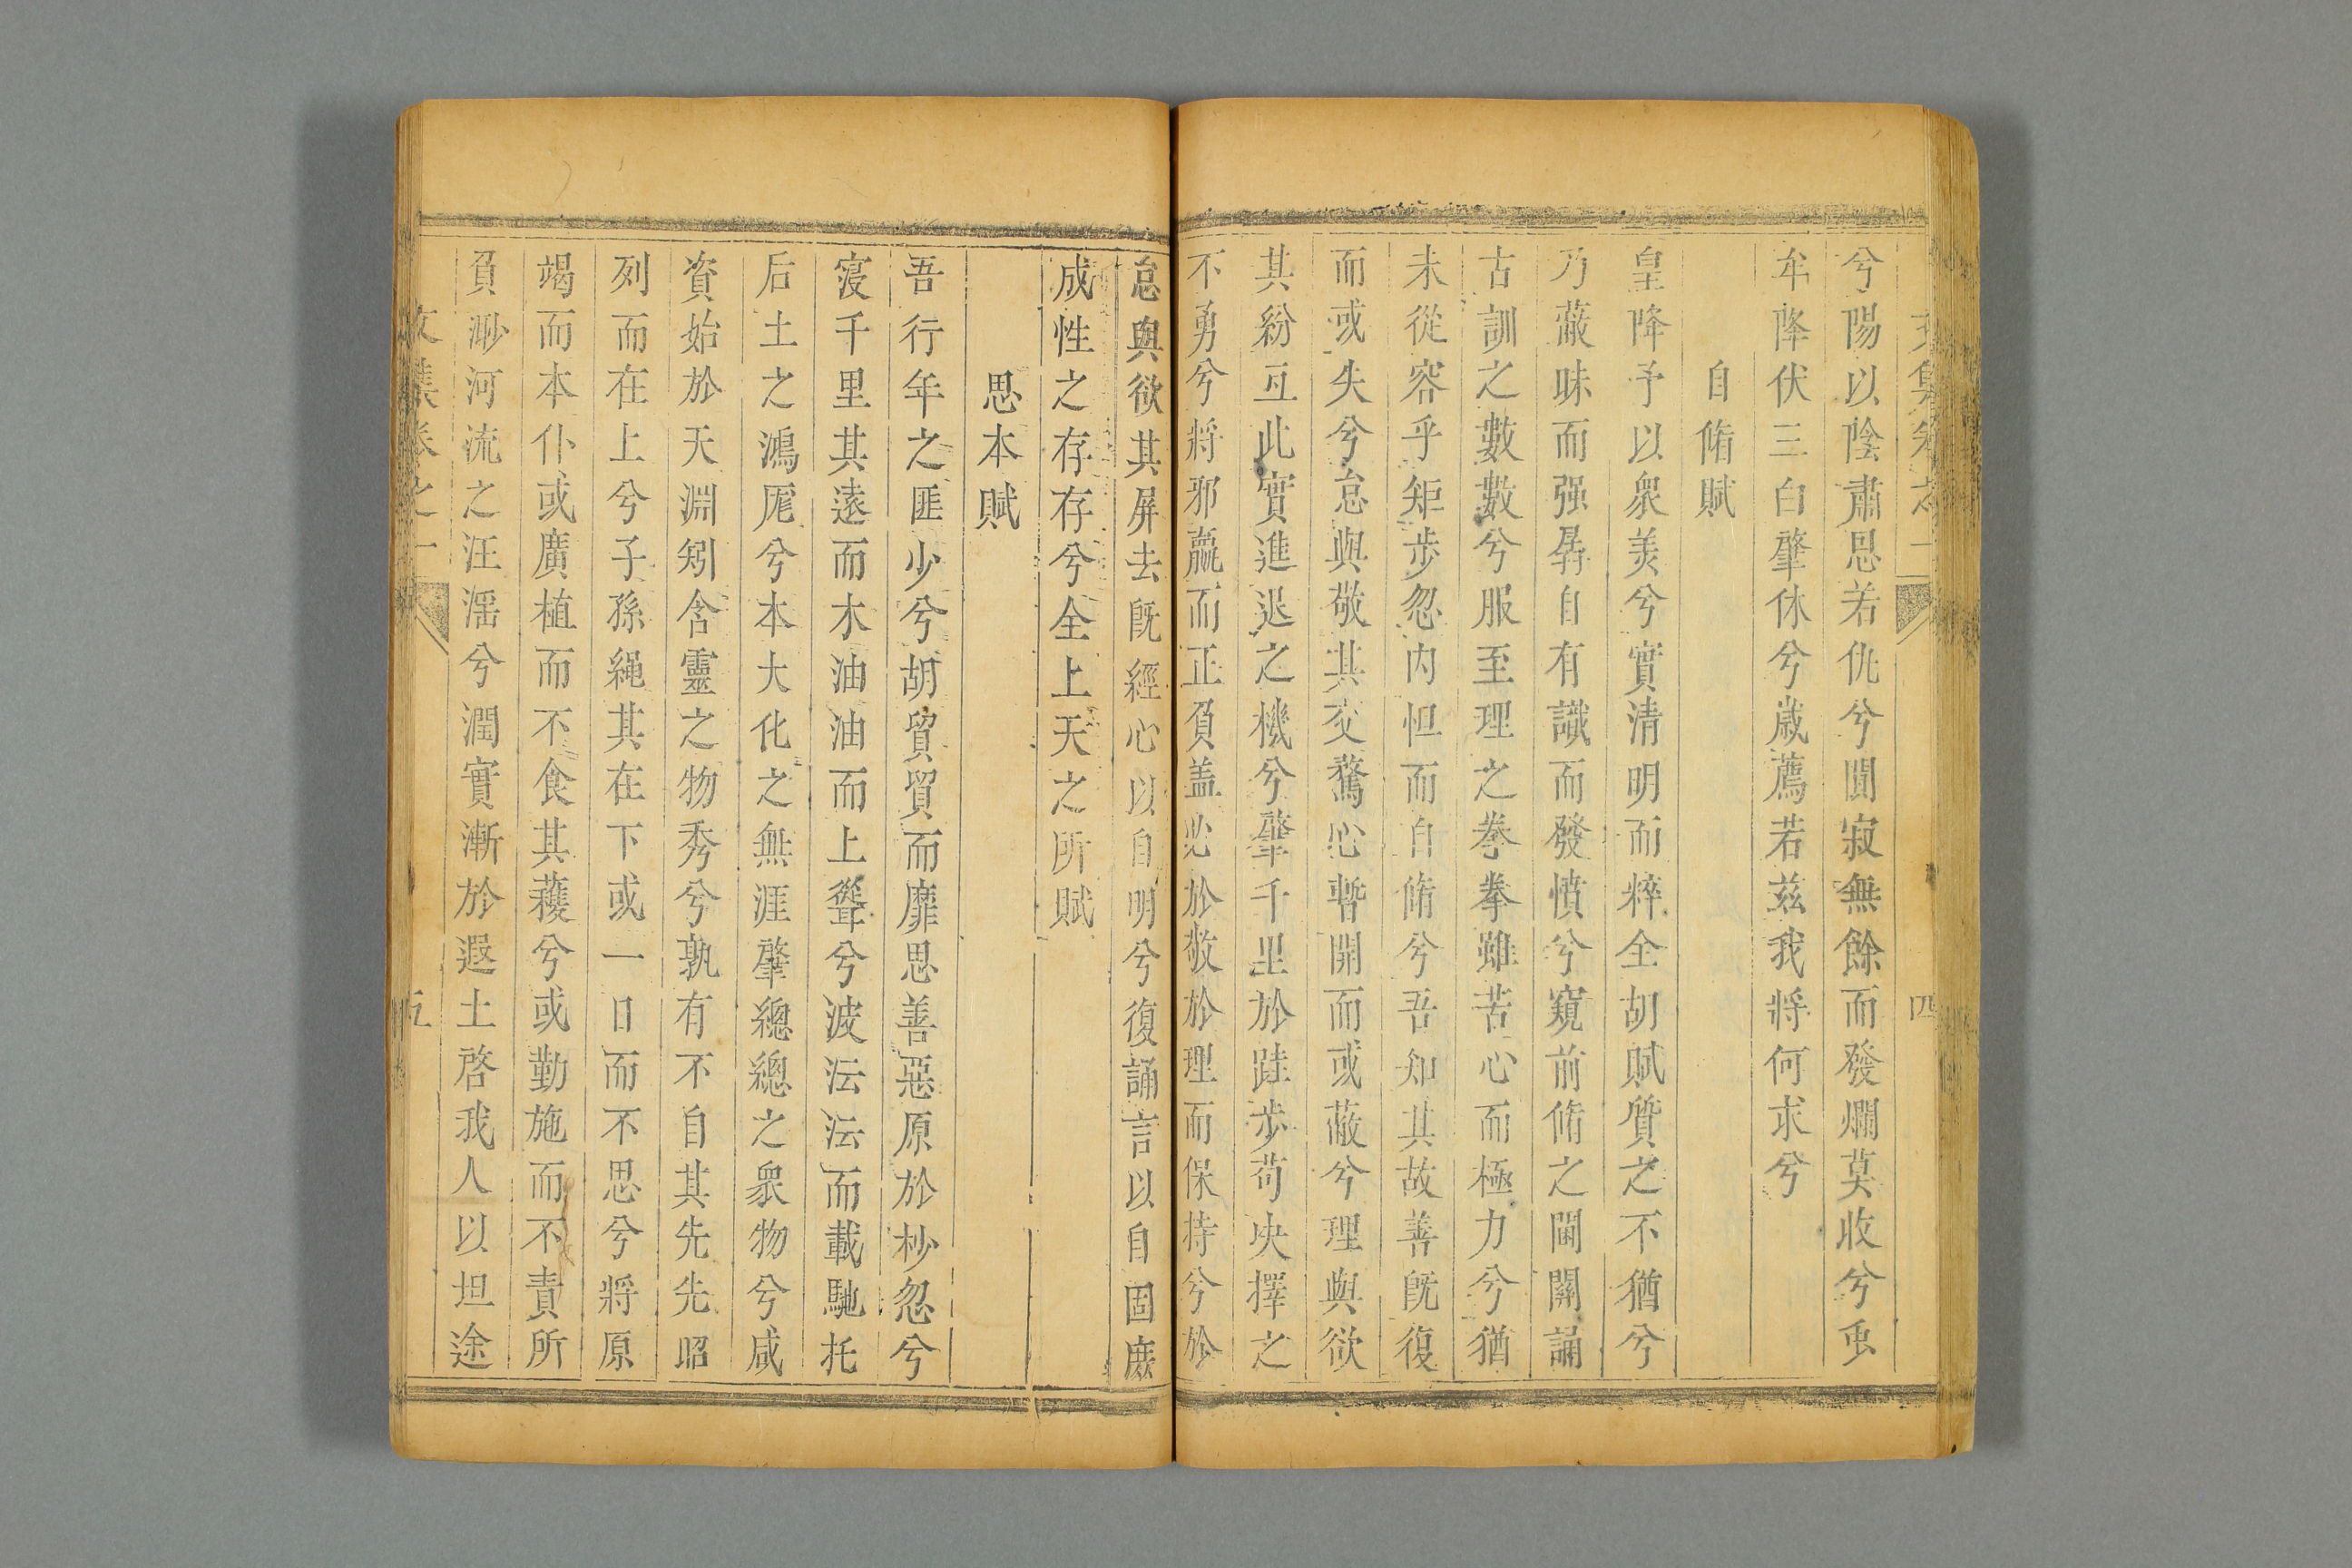 文集卷之一
四
兮陽以陰肅忌若仇兮閴寂無餘而發爛莫收兮虫
牟降伏三白肇休兮歲薦若茲我將何求兮
自脩賦
皇降予以衆美兮實清明而粹全胡賦質之不猶兮
乃蔽昧而强孱自有識而發憤兮窺前脩之閫闗誦
古訓之數數兮服至理之拳拳雖苦心而極力兮猶
未從容乎矩步忽內怛而自脩兮吾知其故善旣復
而或失兮怠與敬其交騖心暫開而或蔽兮理與欲
其紛互此實進退之機兮肇千里於跬步苟决擇之
不勇兮將邪羸而正負盖必於敬於理而保持兮於
怠與欲其屏去旣經心以自明兮復誦言以自固庶
成性之存存兮全上天之所賦
思本賦
吾行年之匪少兮胡貿貿而靡思善惡原於杪忽兮
寖千里其遠而木油油而上聳兮波沄沄而載馳托
后土之鴻厖兮本大化之無涯肇總總之衆物兮咸
資始於天淵矧含靈之物秀兮孰有不自其先先昭
列而在上兮子孫繩其在下或一日而不思兮將原
竭而本仆或廣植而不食其穫兮或勤施而不責所
負渺河流之汪滛兮潤實漸於遐土啓我人以坦途
文集卷之一
五